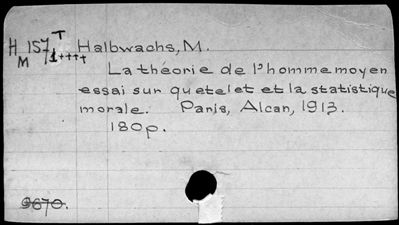 H 157 T Halbwachs, M.
M 1++++
La théorie de l'homme moyen
essai sur quetelet et la statistique
morale. Paris, Alcan, 1913.
180p.
9670.